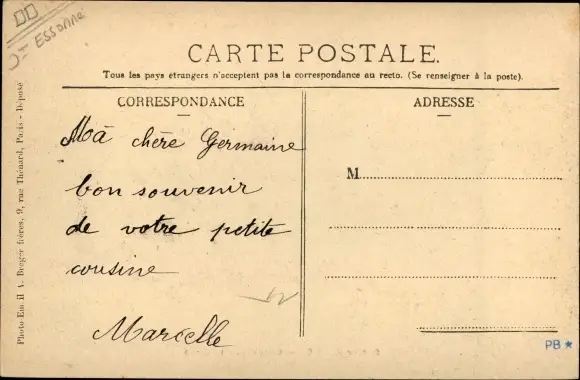 ESSONNE
CARTE POSTALE.
Tous les pays étrangers n'acceptent pas la correspondance au recto. (Se renseigner à la poste).
CORRESPONDANCE
ADRESSE
Mà chère Germaine
bon souvenir
de votre petite
cousine
Marcelle
M
Photo Em il A. Breger frères, 9, rue Thénard, Paris - Déposé
PB